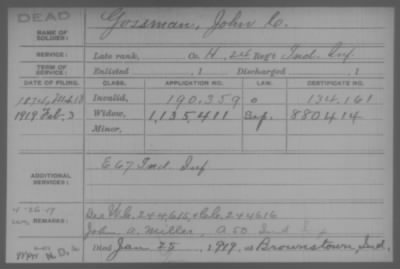 DEAD
NAME OF SOLDIER: Gossman, John C.
SERVICE: Late rank, Co. H, 24 Reg't Ind. Inf
TERM OF SERVICE: Enlisted , 1 Discharged , 1
DATE OF FILING. CLASS. APPLICATION NO. LAW. CERTIFICATE NO.
1874, Invalid, 190,359 134,161
1919 Feb. 3 Widow, 1,135,411 880414
Minor,
ADDITIONAL SERVICES: E 67 Ind. Inf
REMARKS: 244615, 244616
John A. Miller, A 50 Ind
Died Jan 25, 1919, at Brownstown, Ind.